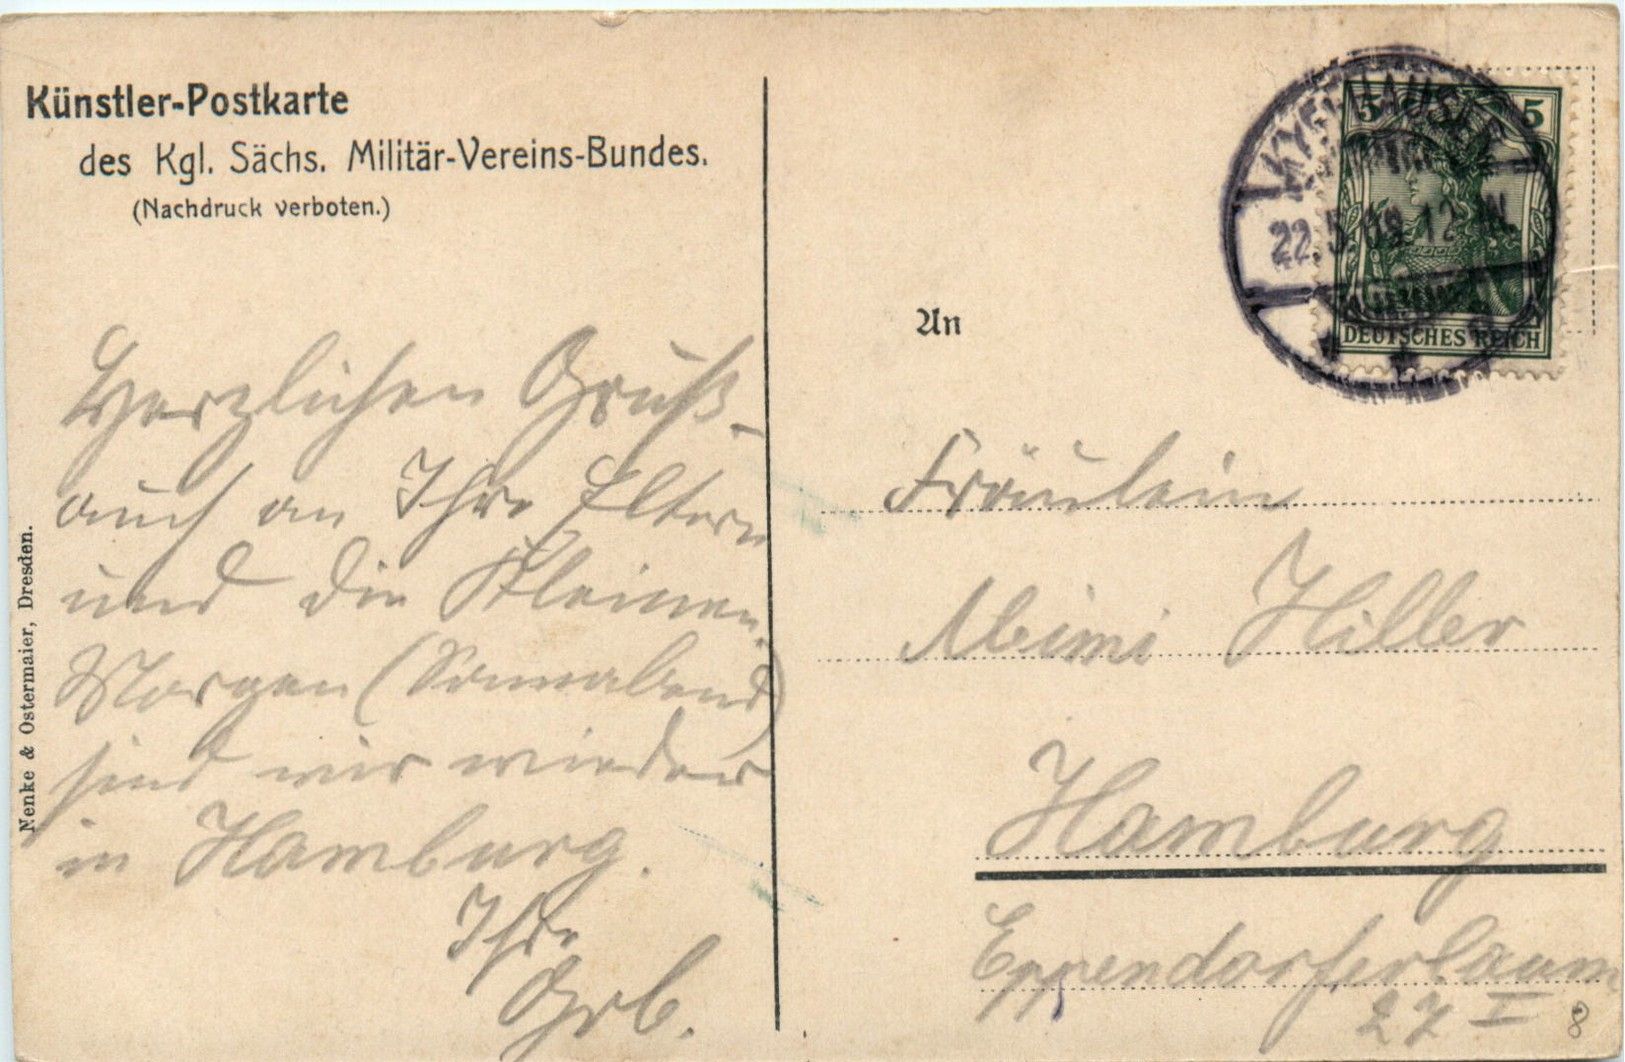 Künstler-Postkarte
des Kgl. Sächs. Militär-Vereins-Bundes.
(Nachdruck verboten.)
Nenke & Ostermaier, Dresden.
Herzlichen Gruß
auch an Ihre Eltern
und die Kleinen.
Morgen (Sonnabend)
sind wir wieder
in Hamburg.
Ihr
KYFFHÄUSER
22.5.09.12-
5 5
DEUTSCHES REICH
An
Fräulein
Mimi Hiller
Hamburg
Eppendorferbaum
27 I
8